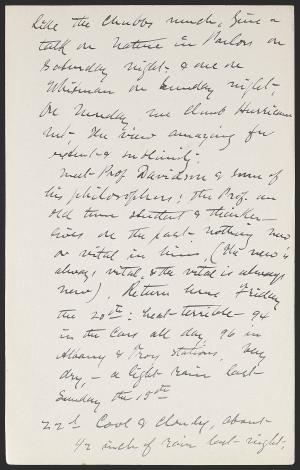 Like the Chubbs much, Give a
talk on Nature in Parlors on
Saturday night & one on
Whitman on Sunday night.
On Monday we climb Hurricane
Mt. the view amazing for
extent & sublimity.
Meet Prof Davidson & some of
his philosophers; the Prof. an
old time student & thinker –
lives on the past – nothing new
or vital in him, (the new is
always vital, & the vital is always
new). Return home Friday
the 20th: heat terrible – 94
in the cars all day, 96 in
Albany & Troy stations. Very
dry, – a light rain last
Sunday the 15th
22d Cool & cloudy, about
1/2 inch of rain last night.